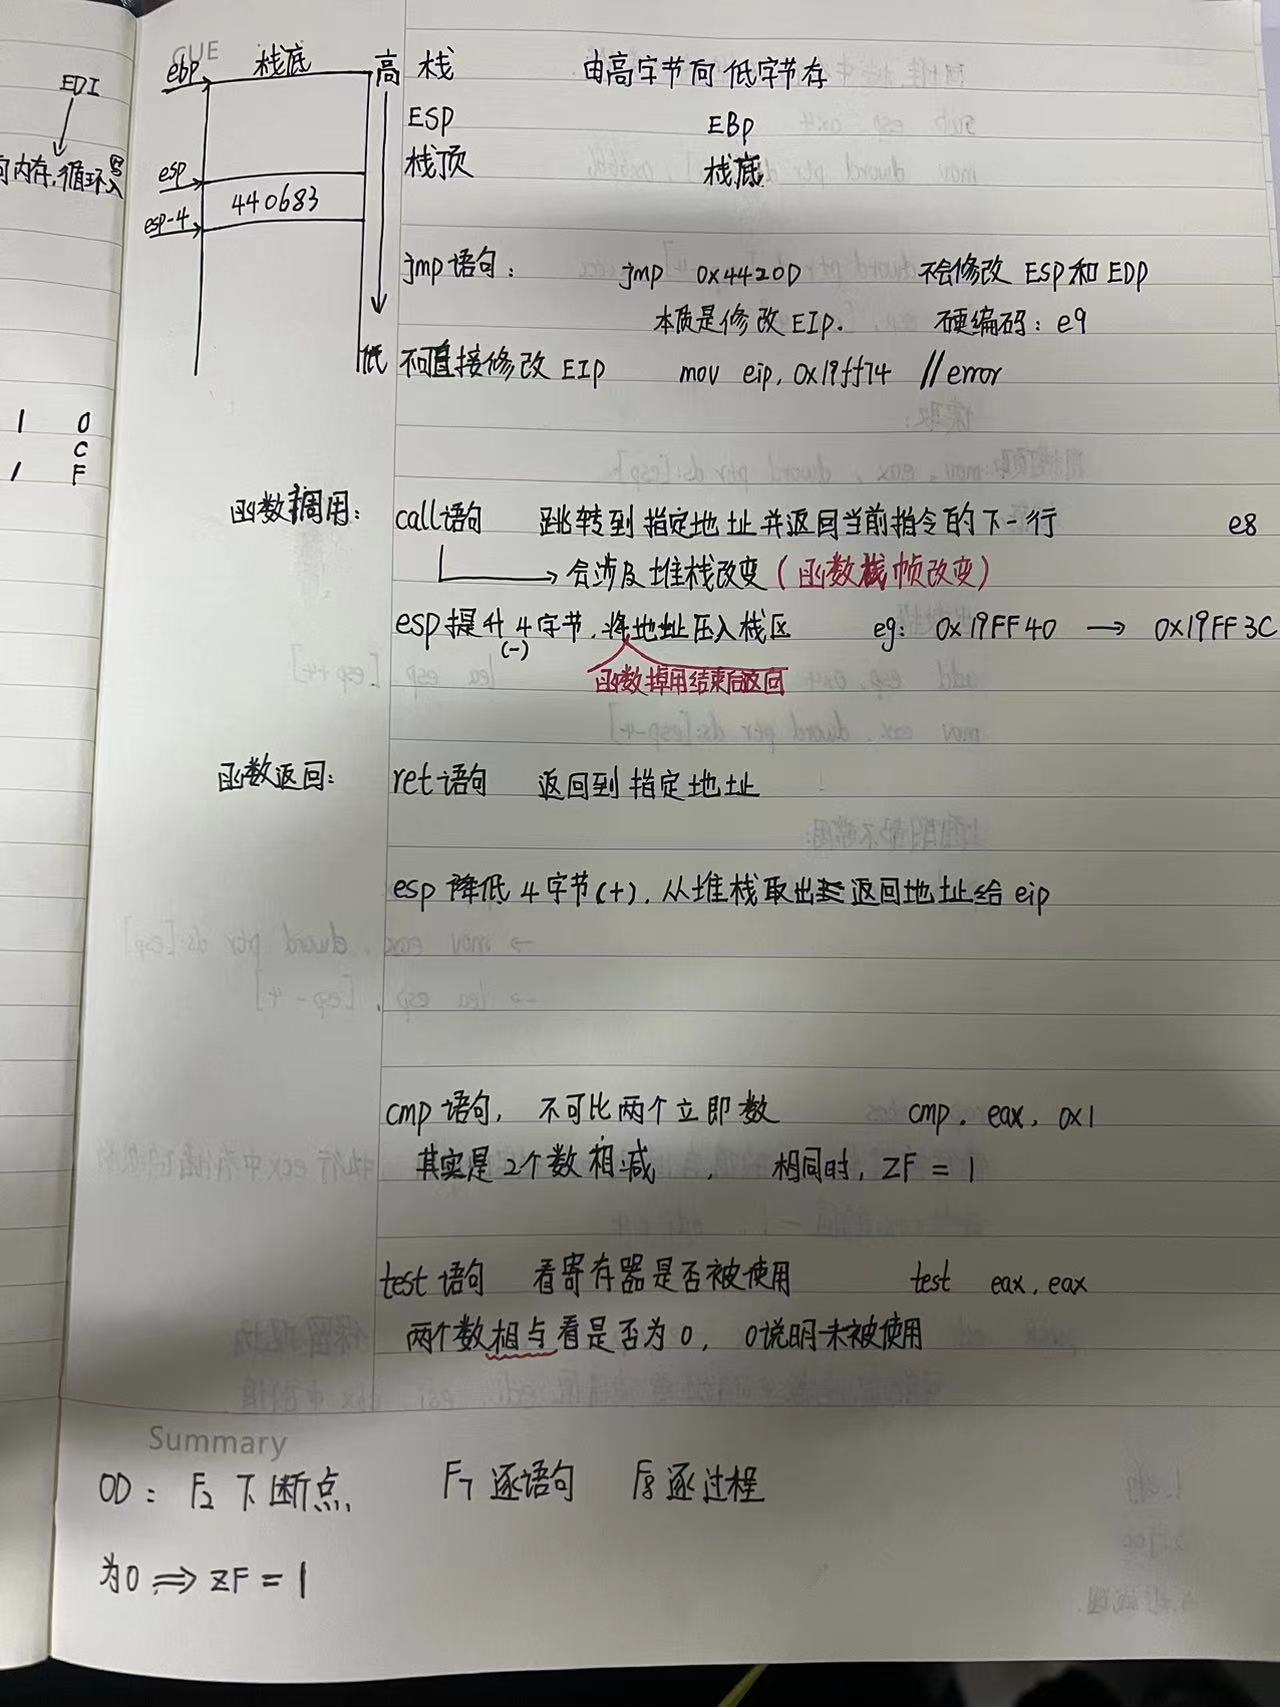 CUE
EDI
向内存,循环写入
1 0
C
1 F
ebp 栈底 高
esp
440683
esp-4
低
栈 由高字节向低字节存
ESP EBP
栈顶 栈底
jmp语句: jmp 0x4420D 不会修改 ESP和EDP
本质是修改EIP. 硬编码: e9
不可直接修改EIP mov eip, 0x19ff74 //error
函数调用: call语句 跳转到指定地址并返回当前指令的下一行 e8
会涉及堆栈改变(函数栈帧改变)
esp提升4字节,将地址压入栈区 eg: 0x19FF40 → 0x19FF3C
(-)
函数掉用结束后返回
函数返回: ret语句 返回到指定地址
esp降低4字节(+),从堆栈取出返回地址给eip
cmp语句, 不可比两个立即数 cmp. eax, 0x1
其实是2个数相减, 相同时, ZF=1
test语句 看寄存器是否被使用 test eax, eax
两个数相与看是否为0, 0说明未被使用
Summary
OD: F2下断点, F7逐语句 F8逐过程
为0 ⇒ ZF=1